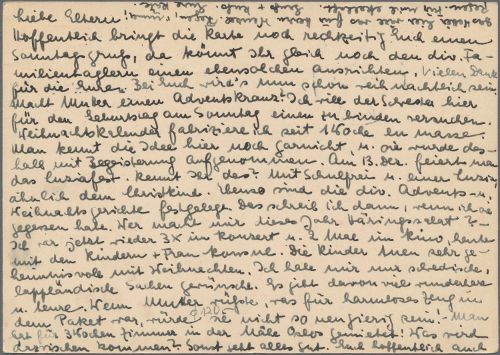 Liebe Eltern!
Hoffentlich bringt die Karte noch rechtzeitig Euch einen
Sonntagsgruß, da könnt Ihr gleich noch den div. Fa-
milientaglern einen ebensolchen ausrichten. Vielen Dank
für die . Bei Euch wird's nun schon weihnachtlich sein.
Macht Mutter einen Adventskranz? Ich will der Schwester hier
für den Geburtstag am Sonntag einen zu binden versuchen.
Weihnachtskalender fabriziere ich seit 1 Woche en masse.
Man kennt die Idee hier noch garnicht u. sie wurde des-
halb mit Begeisterung aufgenommen. Am 13. Dez. feiert man
das Luziafest. Kennt Ihr das? Mit Schulfrei u. einer Luzia
ähnlich dem Christkind. Ebenso sind die div. Advents- u.
Weihnachtsgerichte festgelegt. Das schreib ich dann, wenn ich sie
gegessen habe. Wer macht mir dieses Jahr Häringssalat?
Ich war jetzt wieder 3x in Konzert u. 2 Mal im Kino, heute
mit den Kindern + Frau Konsul. Die Kinder tuen sehr ge-
heimnisvoll mit Weihnachten. Ich habe mir nur schwedische,
lappländische Sachen gewünscht. Es gibt davon viel wunderbare
u. teure. Wenn Mutter wüßte, was für harmloses Zeug in
dem Paket war, würde sie nicht so neugierig sein! Man
hat für 3 Wochen Zimmer in der Nähe Oslos gemietet! Was wird
dazwischen kommen? Sonst geht alles gut. Euch hoffentlich auch